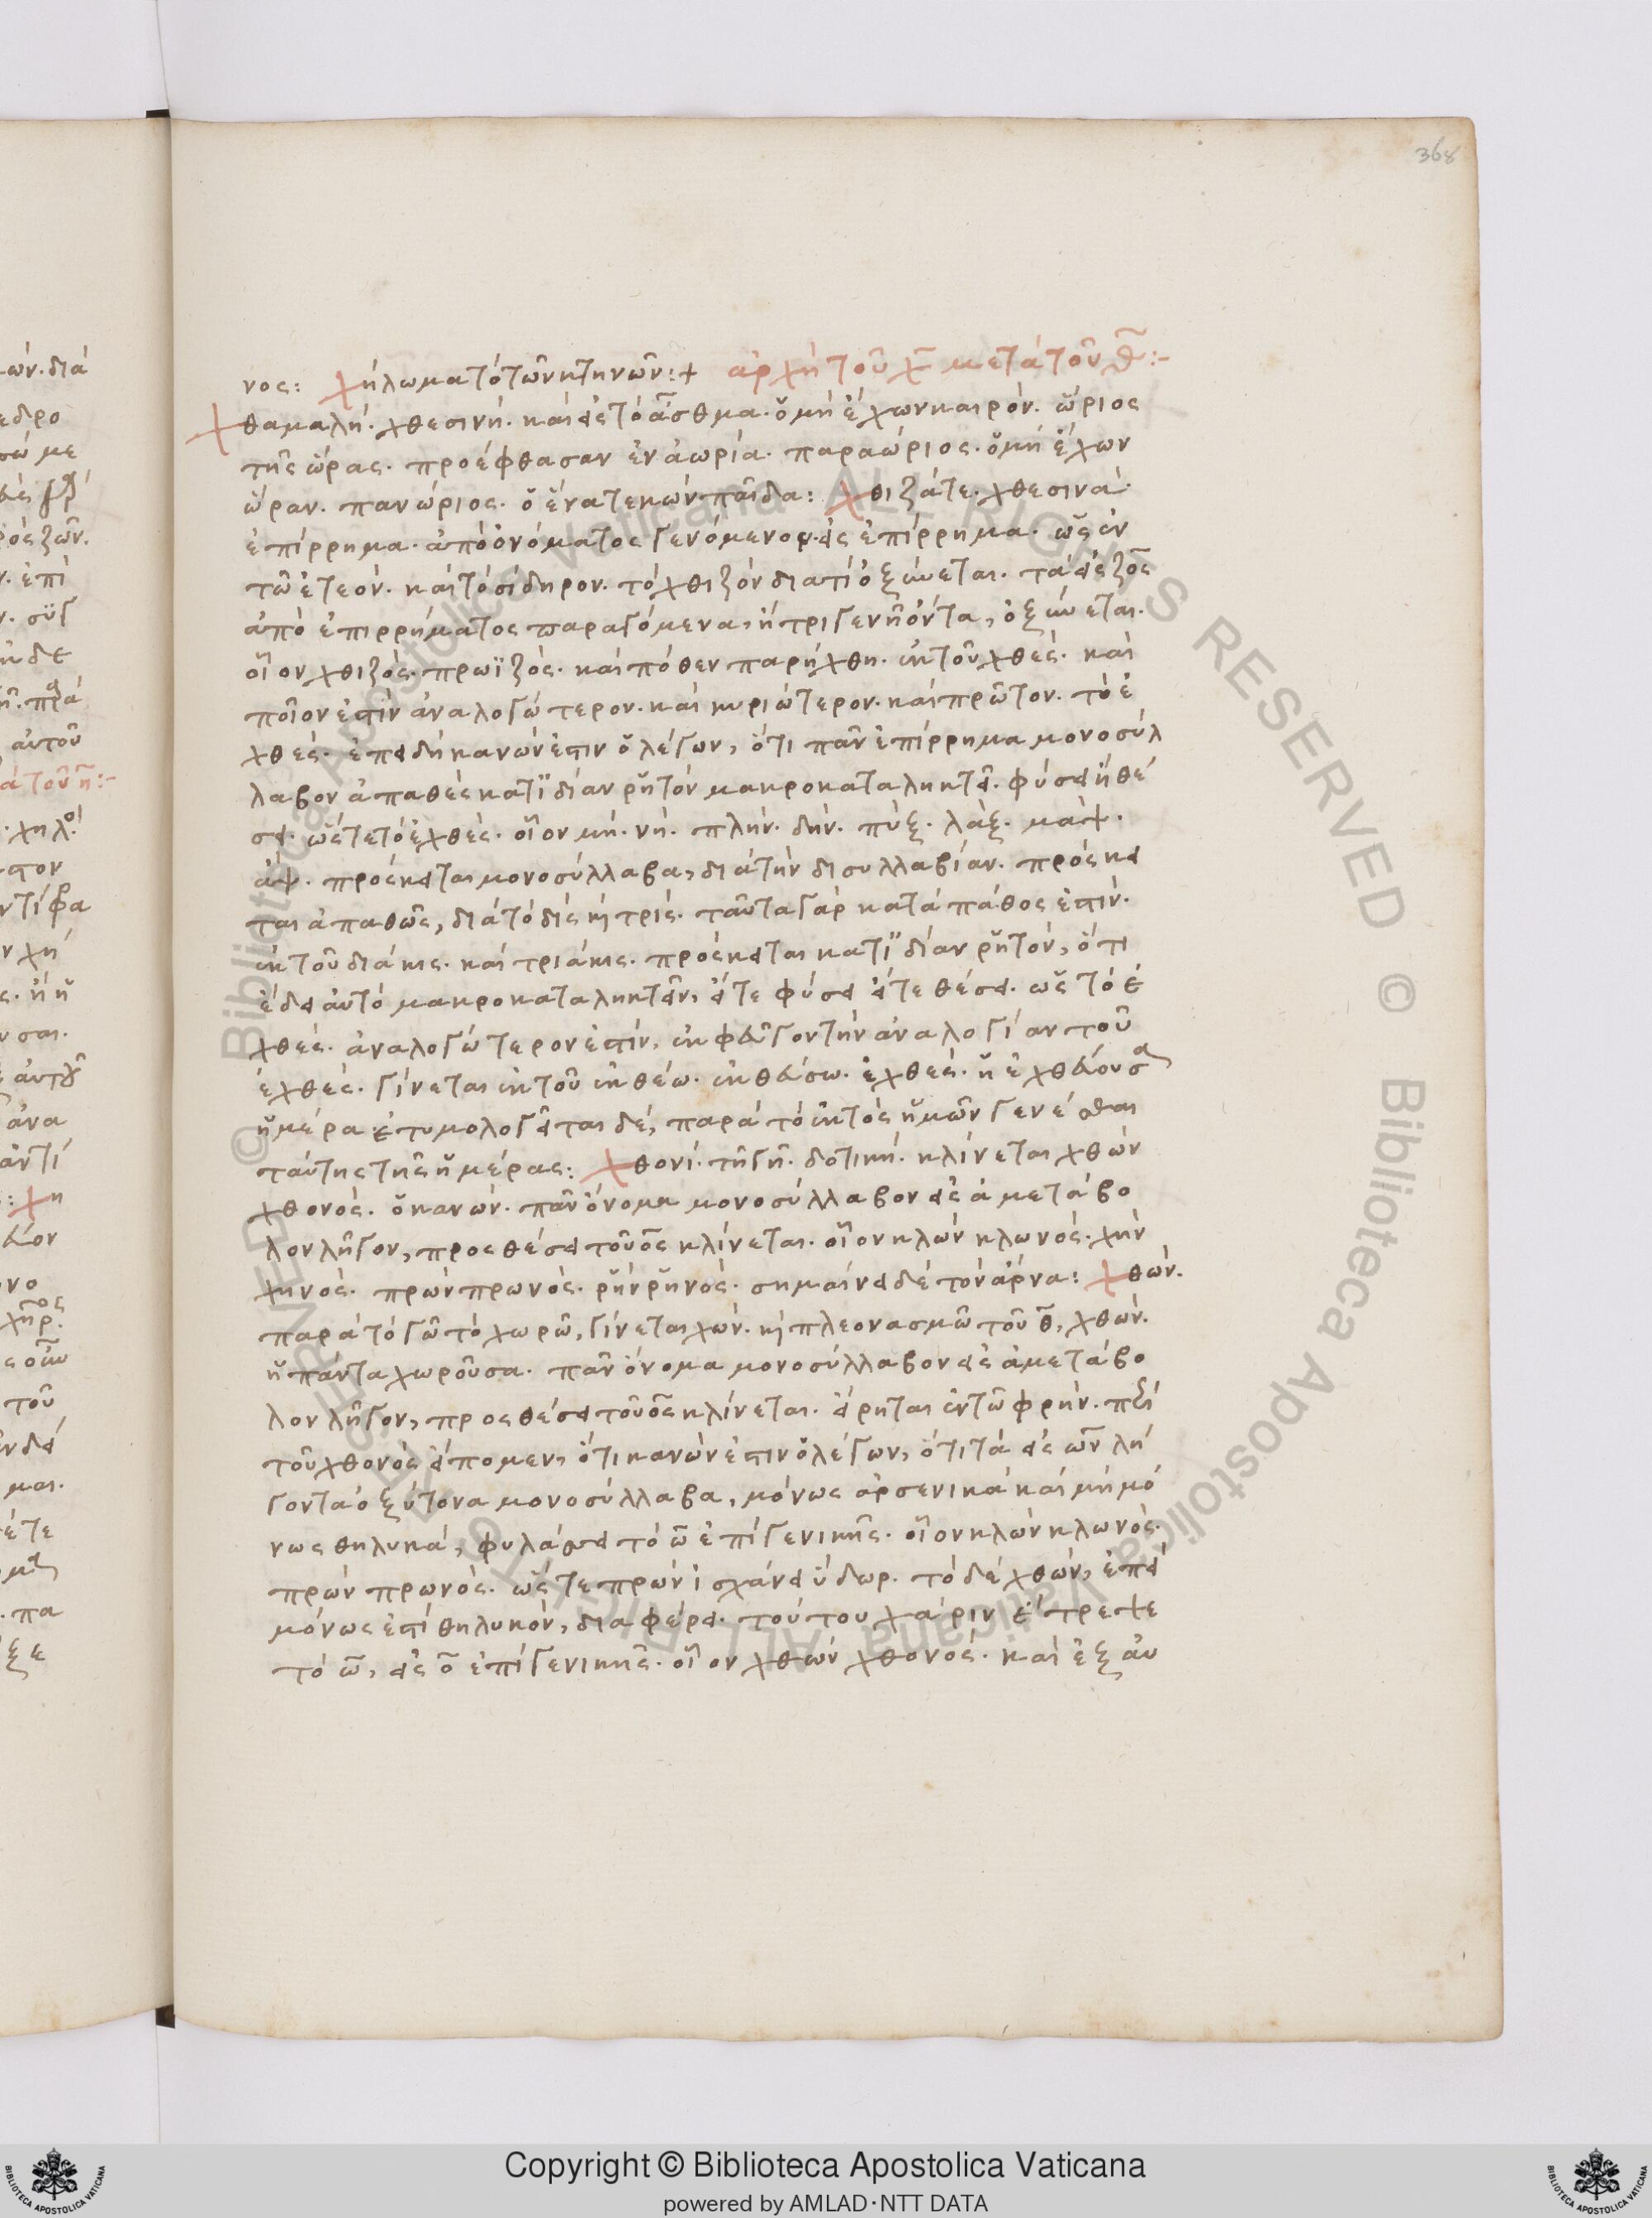 368
νος: χήλωμα τὸ τῶν κτηνῶν:+ ἀρχὴ τοῦ χ̄ μετὰ τοῦ θ̄:-
χθαμαλή. χθεσινή. καὶ εἰς τὸ ἆσθμα. ὁ μὴ ἔχων καιρόν. ὥριος
τῆς ὥρας. προέφθασαν ἐν ἀωρία. παραώριος. ὁ μὴ ἔχων
ὥραν. πανώριος. ὁ ἕνα τεκὼν παῖδα: χθιζά τε. χθεσινά.
ἐπίρρημα. ἀπὸ ὀνόματος γενόμενον εἰς ἐπίρρημα. ὡς ἐν
τῶ ἐτεόν. καὶ τὸ σίδηρον. τὸ χθιζὸν διατί ὀξύνεται. τὰ εἰς ζος
ἀπὸ ἐπιρρήματος παραγόμενα, ἢ τριγενῆ ὄντα, ὀξύνεται.
οἷον χθιζός. πρωϊζός. καὶ πόθεν παρήχθη. ἐκ τοῦ χθές. καὶ
ποῖον ἐστὶν ἀναλογώτερον. καὶ κυριώτερον. καὶ πρῶτον. τὸ ἐ
χθές. ἐπειδὴ κανών ἐστιν ὁ λέγων, ὅτι πᾶν ἐπίρρημα μονοσύλ
λαβον ἀπαθὲς κατ' ἰδίαν ῥητὸν μακροκαταληκτεῖ. φύσει ἢ θέ
σει. ὥστε τὸ ἐχθές. οἷον μή. νή. πλήν. δήν. πύξ. λάξ. μάψ.
ἄψ. πρόσκειται μονοσύλλαβα, διὰ τὴν δισυλλαβίαν. πρόσκει
ται ἀπαθῶς, διὰ τὸ δίς καὶ τρίς. ταῦτα γὰρ κατὰ πάθος ἐστίν.
ἐκ τοῦ διάκις. καὶ τριάκις. πρόσκειται κατ' ἰδίαν ῥητόν, ὅτι
ἔδει αὐτὸ μακροκαταληκτεῖν, εἴτε φύσει εἴτε θέσει. ὡς τὸ ἐ
χθές. ἀναλογώτερον ἐστίν, ἐκφεῦγον τὴν ἀναλογίαν τοῦ
ἐχθές. γίνεται ἐκ τοῦ ἐκθέω. ἐκθεύσω. ἐχθές. ἡ ἐχθεύουσα
ἡμέρα ἐτυμολογεῖται δέ, παρὰ τὸ ἐκτὸς ἡμῶν γενέσθαι
ταύτης τῆς ἡμέρας: χθονί. τῆ γῆ. δοτική. κλίνεται χθών
χθονός. ὁ κανών. πᾶν ὄνομα μονοσύλλαβον εἰς ἀμετάβο
λον λῆγον, προσθέσει τοῦ ος κλίνεται. οἷον κλών κλωνός. χήν
χηνός. πρών πρωνός. ῥήν ῥηνός. σημαίνει δὲ τὸν ἄρνα: χθών.
παρὰ τὸ γῶ τὸ χωρῶ, γίνεται χών. καὶ πλεονασμῶ τοῦ θ̄, χθών.
ἡ πάντα χωροῦσα. πᾶν ὄνομα μονοσύλλαβον εἰς ἀμετάβο
λον λῆγον, προσθέσει τοῦ ος κλίνεται. εἴρηται ἐν τῶ φρήν. περὶ
τοῦ χθονὸς εἴπομεν, ὅτι κανών ἐστιν ὁ λέγων, ὅτι τὰ εἰς ων λή
γοντα ὀξύτονα μονοσύλλαβα, μόνως ἀρσενικὰ καὶ μὴ μό
νως θηλυκά, φυλάσσει τὸ ω̄ ἐπὶ γενικῆς. οἷον κλών κλωνός.
πρών πρωνός. ὥστε πρών ἰσχάνει ὕδωρ. τὸ δὲ χθών, ἐπεὶ
μόνως ἐστὶ θηλυκόν, διαφέρει. τούτου χάριν ἔτρεψε
τὸ ω̄, εἰς ο̄ ἐπὶ γενικῆς. οἷον χθών χθονός. καὶ ἐξ αὐ
Copyright © Biblioteca Apostolica Vaticana
powered by AMLAD·NTT DATA